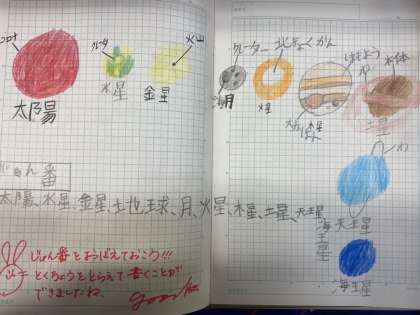 コロナ
太陽
クレータ
水星
火山
金星
クレーター
月
北きょくかん
火星
しまもよう
大せきはん
木星
わ
本体
土星
わ
天王星
海王星
じゅん番
太陽、水星、金星、土地球、月、火星、木星、土星、天王星、海王星
じゅん番とおぼえておこう!!!
とくちょうをとらえて書くことが
できましたね。